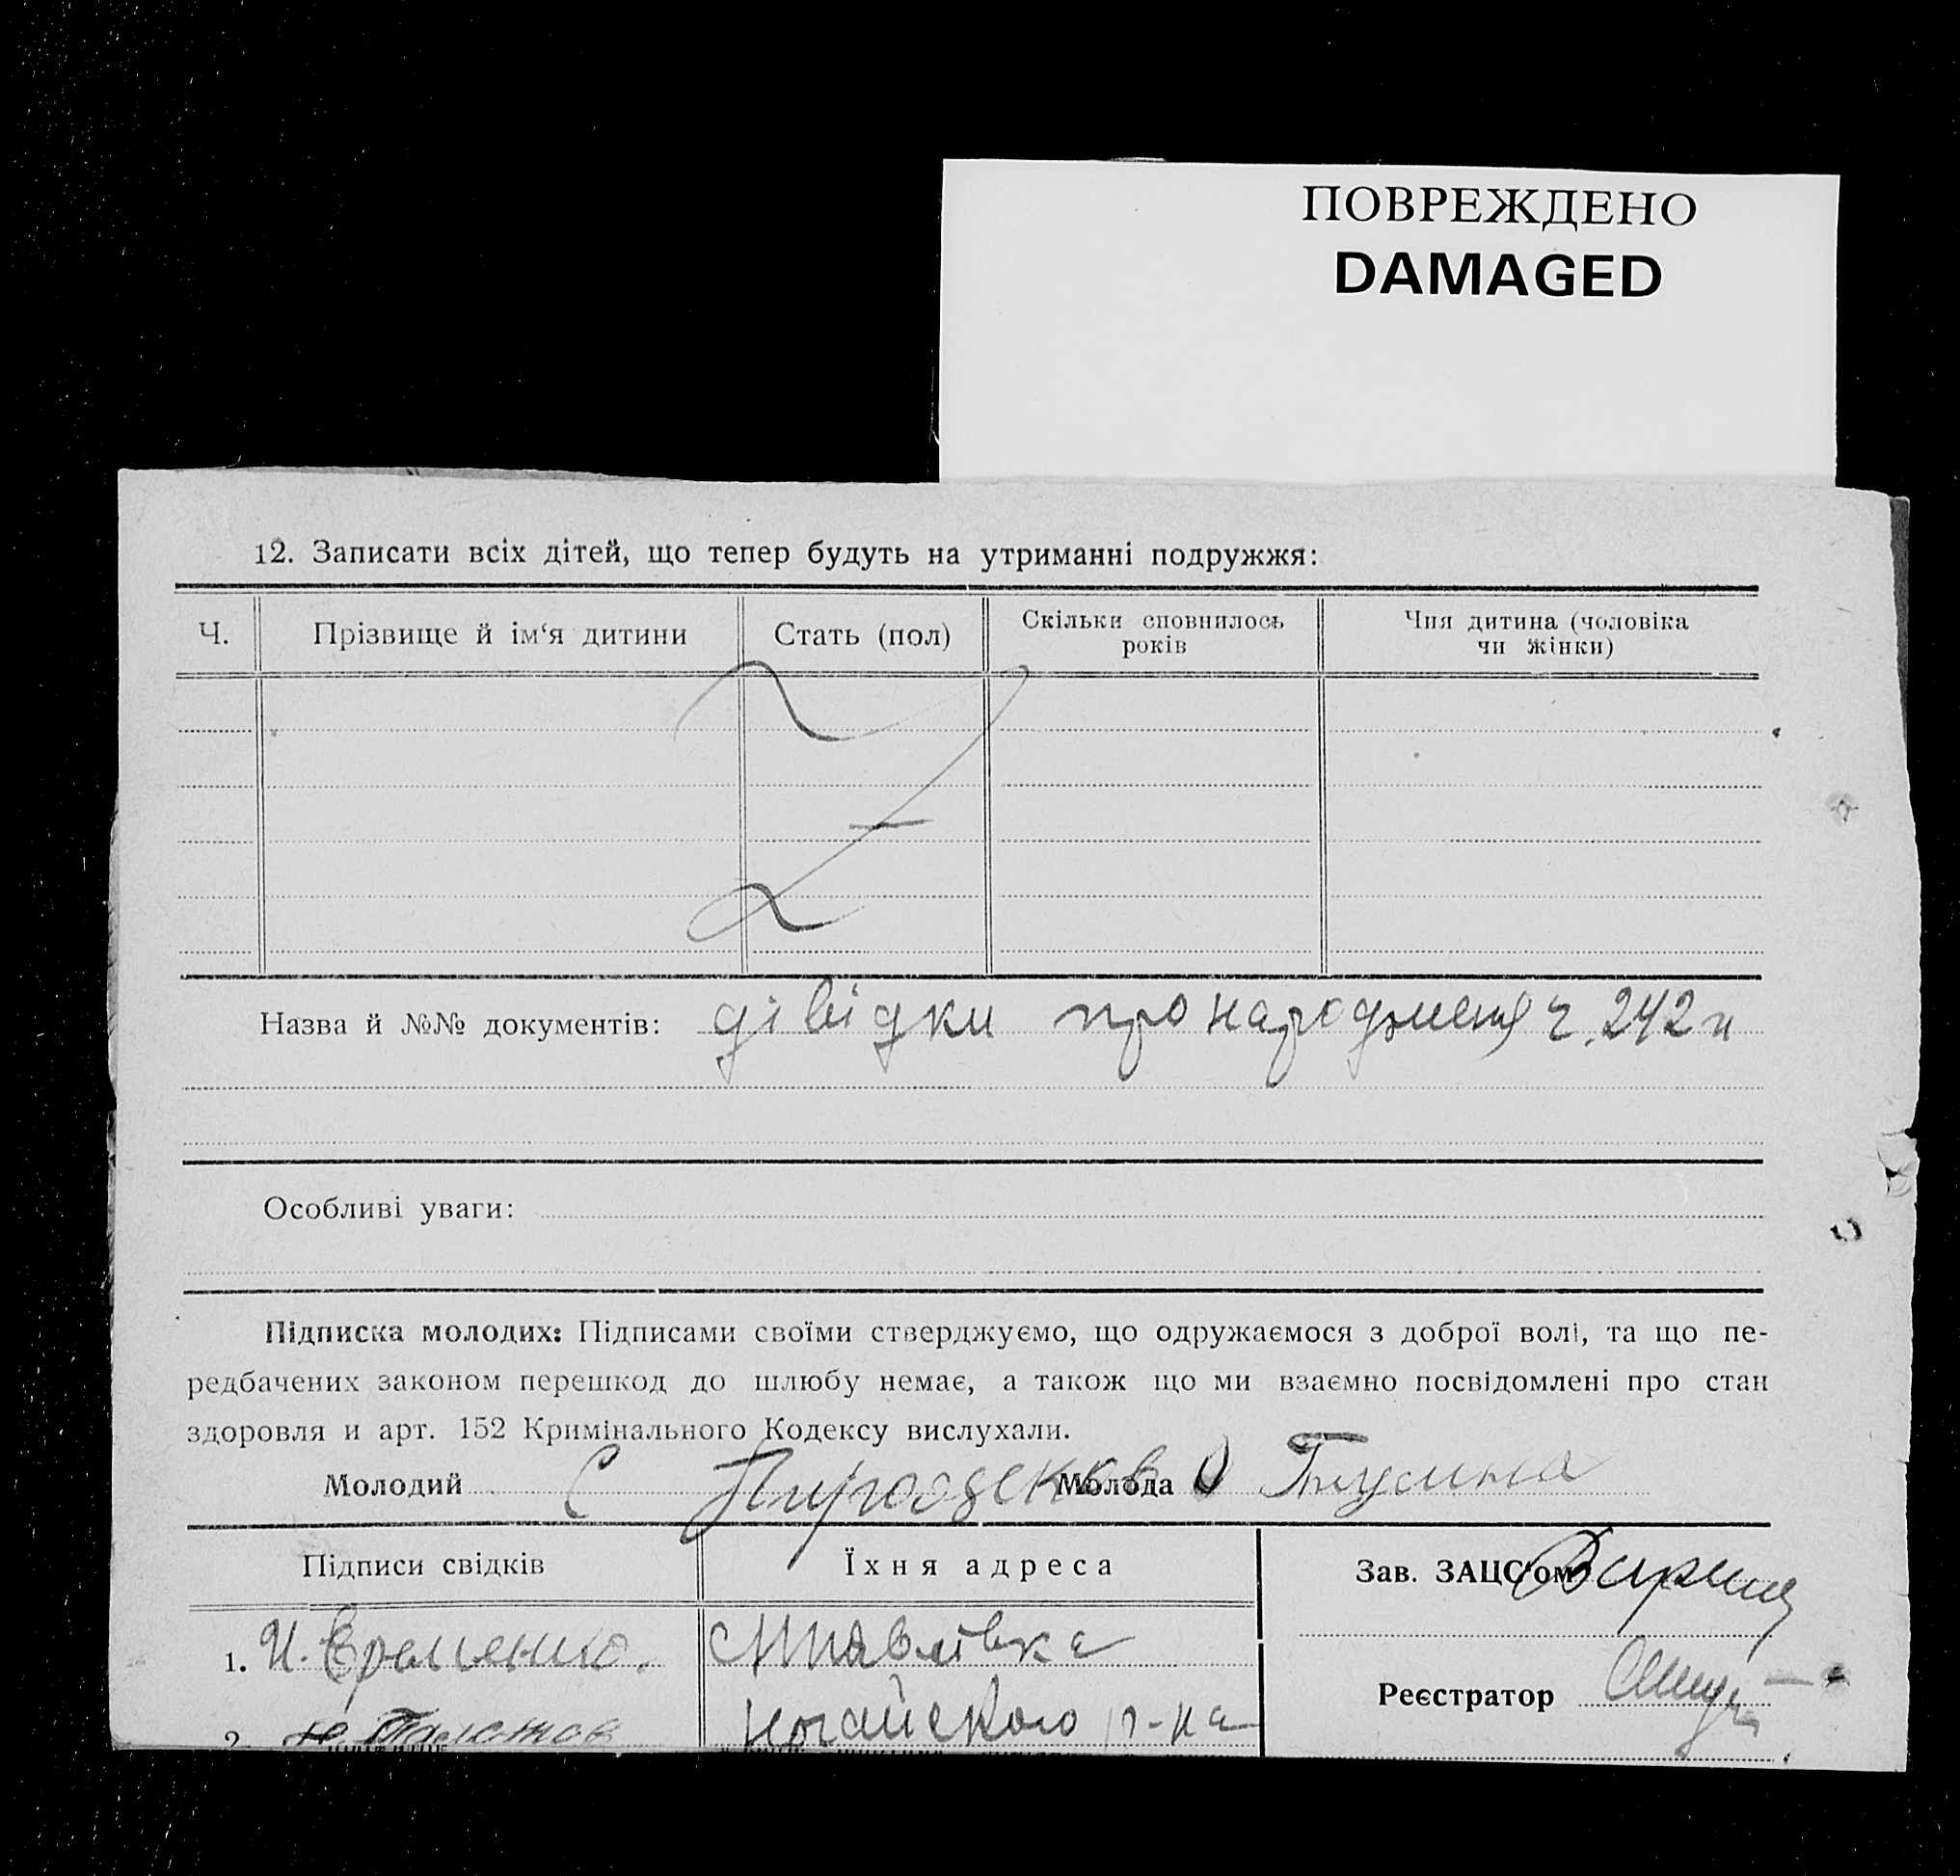 ПОВРЕЖДЕНО
DAMAGED
12. Записати всіх дітей, що тепер будуть на утриманні подружжя:
Ч.
Прізвище й ім‘я дитини
Стать (пол)
Скільки сповнилось
років
Чия дитина (чоловіка
чи жінки)
Назва й №№ документів: про народження ч. 242
Особливі уваги:
Підписка молодих: Підписами своїми стверджуємо, що одружаємося з доброї волі, та що пе-
редбачених законом перешкод до шлюбу немає, а також що ми взаємно посвідомлені про стан
здоровля и арт. 152 Кримінального Кодексу вислухали.
Молодий Молода
Підписи свідків
Їхня адреса
Зав. ЗАЦС'ом
1. И. Еременко.
Реєстратор
2.
Ногайского р-на